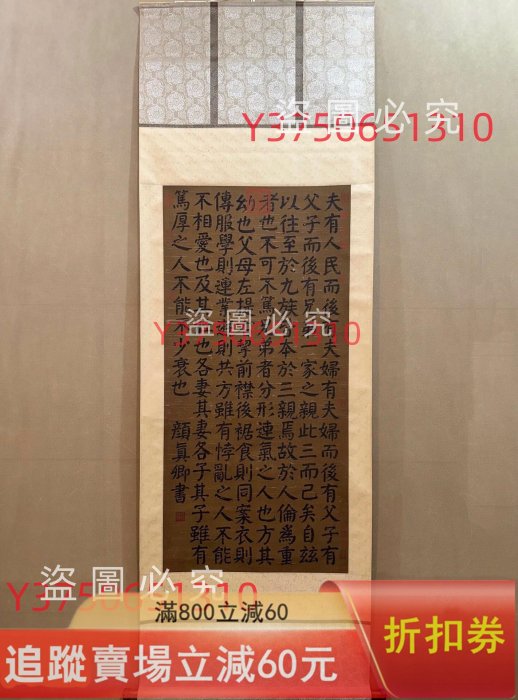 盜圖必究
Y3750651310
夫有人民而後有夫婦有夫婦而後有父子有
父子而後有兄一家之親此三而已矣自茲
以往至於九族本於三親焉故於人倫為重
者也不可不篤弟者分形連氣之人也方其
幼也父母左提挈前襟後裾食則同案衣則
傳服學則連業則共方雖有悖亂之人不能
不相愛也及其也各妻其妻各子其子雖有
篤厚之人不能少衰也 顏真卿書
盜圖必究
Y3750651310
盜圖必究
Y3750651310
滿800立減60
追蹤賣場立減60元
折扣券